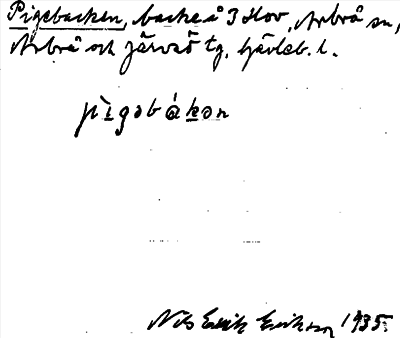 Pigebacken, backe å 3 Hov, Arbrå sn,
Arbrå och Järvsö tg, Gävleb. l.
pìgəbákən
Nils Erik Erikson 1935.